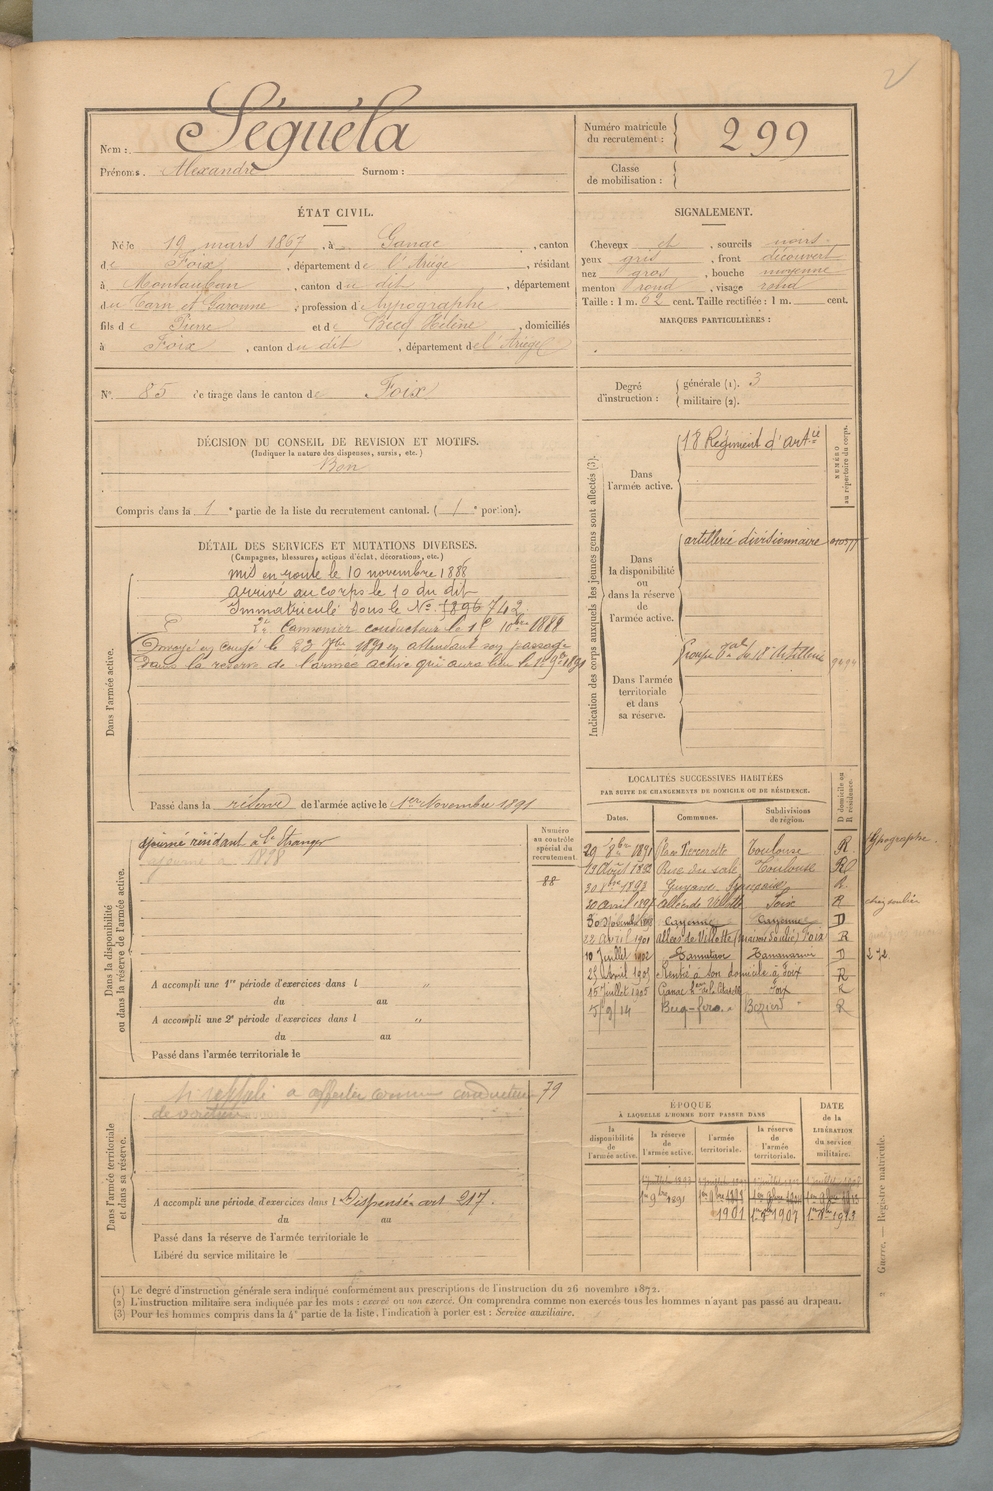 Nom : Séguéla
Prénoms. Alexandre Surnom :
Numéro matricule du recrutement : 299
Classe de mobilisation :
ÉTAT CIVIL.
Né le 19 mars 1867, à Ganac, canton
de Foix, département de l'Ariège, résidant
à Montauban, canton du dit, département
du Tarn et Garonne, profession de typographe
fils de Pierre et de Becq Hélène, domiciliés
à Foix, canton du dit, département de l'Ariège
SIGNALEMENT.
Cheveux et, sourcils noirs
yeux gris, front découvert
nez gros, bouche moyenne
menton rond, visage rond
Taille : 1 m. 62 cent. Taille rectifiée : 1 m. cent.
MARQUES PARTICULIÈRES :
N° 85 de tirage dans le canton de Foix
Degré d'instruction : générale (1). 3
militaire (2).
DÉCISION DU CONSEIL DE REVISION ET MOTIFS.
(Indiquer la nature des dispenses, sursis, etc.)
Bon
Compris dans la 1e partie de la liste du recrutement cantonal. (1e portion).
DÉTAIL DES SERVICES ET MUTATIONS DIVERSES.
(Campagnes, blessures, actions d'éclat, décorations, etc.)
Dans l'armée active.
mis en route le 10 novembre 1888
arrivé au corps le 10 du dit
Immatriculé sous le N° 1896 742
2e Canonnier conducteur le 1e 10bre 1888
Envoyé en congé le 23 7bre 1891 en attendant son passage
dans la réserve de l'armée active qui aura lieu le 1er 9bre 1891
Passé dans la réserve de l'armée active le 1er Novembre 1891
Indication des corps auxquels les jeunes gens sont affectés (3).
NUMÉRO au répertoire du corps.
Dans l'armée active.
18 Régiment d'artie
Dans la disponibilité ou dans la réserve de l'armée active.
artillerie divisionnaire
Dans l'armée territoriale et dans sa réserve.
Groupe tal du 18e Artillerie
LOCALITÉS SUCCESSIVES HABITÉES
PAR SUITE DE CHANGEMENTS DE DOMICILE OU DE RÉSIDENCE.
Dates. Communes. Subdivisions de région. D domicile ou R résidence.
29 8bre 1891 Toulouse R Typographe
13 Août 1892 Toulouse R
Guyane française R
20 avril Allée de Villote Foix R
Cayenne Cayenne D
22 Avril 1901 allées de Villotte (maison Soulié) Foix R
10 Juillet 1902 Tamatave Tananarive D 272
Avril 1905 Rentré à son domicile à Foix R
15 Juillet 1905 Ganac Foix R
5/9/14 Béziers R
Dans la disponibilité ou dans la réserve de l'armée active.
Numéro au contrôle spécial du recrutement.
ajourné résidant à l'Étranger
ajourné à 1898
88
A accompli une 1re période d'exercices dans l "
du au
A accompli une 2e période d'exercices dans l "
du au
Passé dans l'armée territoriale le
Dans l'armée territoriale et dans sa réserve.
Si rappelé à affecter comme conducteur
de voiture
79
A accompli une période d'exercices dans l Dispensé art 217.
du au
Passé dans la réserve de l'armée territoriale le
Libéré du service militaire le
ÉPOQUE
À LAQUELLE L'HOMME DOIT PASSER DANS
la disponibilité de l'armée active.
la réserve de l'armée active.
l'armée territoriale.
la réserve de l'armée territoriale.
DATE de la LIBÉRATION du service militaire.
1er 9bre 1891
1901 1er 8bre 1907 1er 8bre 1913
2 Guerre. — Registre matricule.
(1) Le degré d'instruction générale sera indiqué conformément aux prescriptions de l'instruction du 26 novembre 1872.
(2) L'instruction militaire sera indiquée par les mots : exercé ou non exercé. On comprendra comme non exercés tous les hommes n'ayant pas passé au drapeau.
(3) Pour les hommes compris dans la 4e partie de la liste, l'indication à porter est : Service auxiliaire.